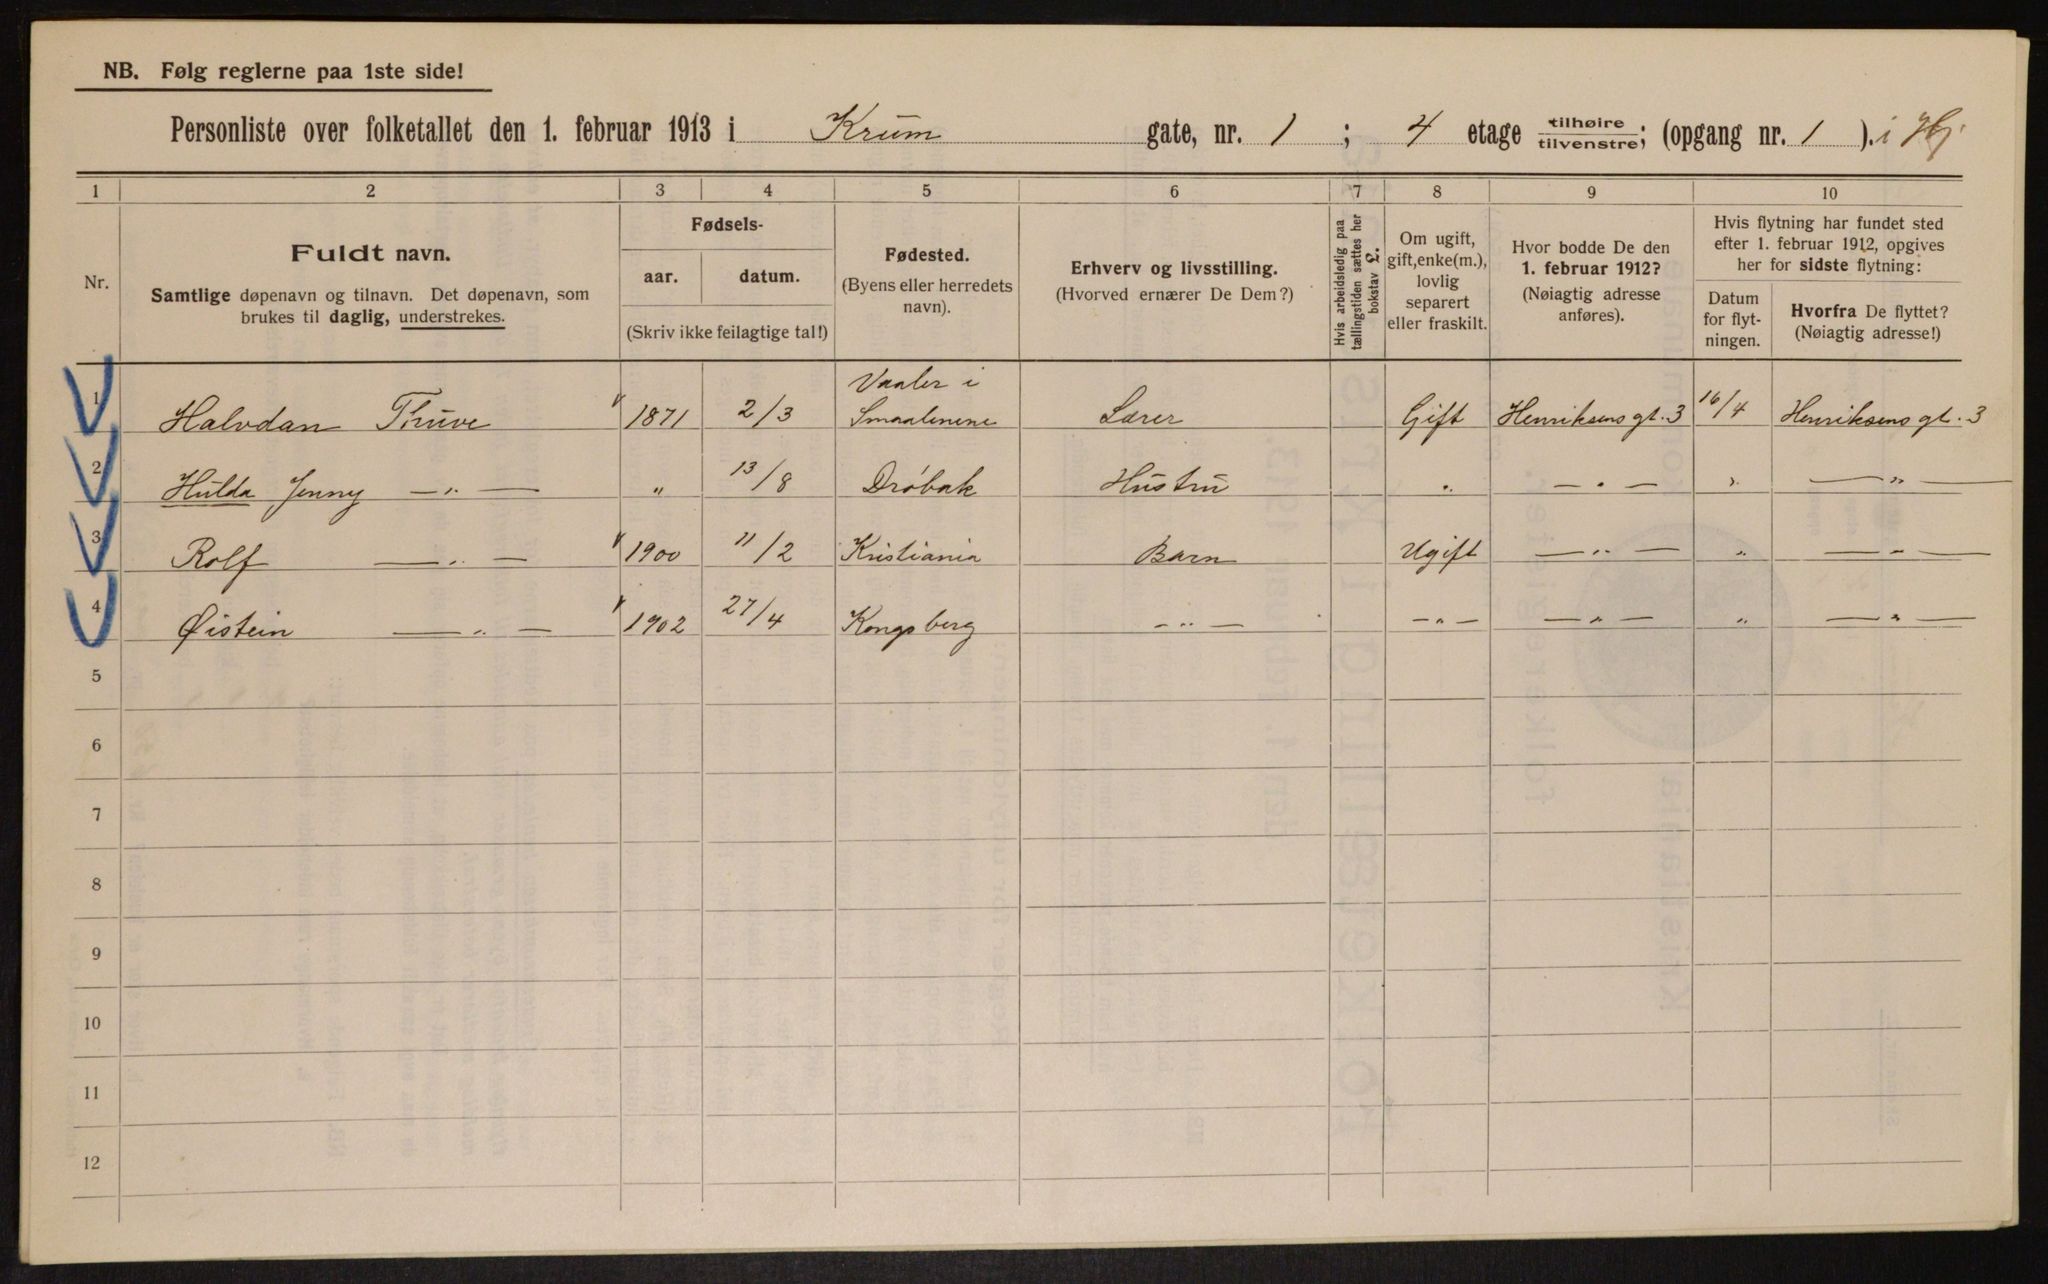 NB. Følg reglerne paa 1ste side!
Personliste over folketallet den 1. februar 1913 i Krum gate, nr. 1 ; 4 etage tilhøire/tilvenstre; (opgang nr. 1 ). i Hj
1 2 3 4 5 6 7 8 9 10
Nr.
Fuldt navn.
Samtlige døpenavn og tilnavn. Det døpenavn, som
brukes til daglig, understrekes.
Fødsels-
aar. datum.
(Skriv ikke feilagtige tal!)
Fødested.
(Byens eller herredets
navn).
Erhverv og livsstilling.
(Hvorved ernærer De Dem?)
Hvis arbeidsledig paa
tællingstiden sættes her
bokstav L.
Om ugift,
gift, enke(m.),
lovlig
separert
eller fraskilt.
Hvor bodde De den
1. februar 1912?
(Nøiagtig adresse
anføres).
Hvis flytning har fundet sted
efter 1. februar 1912, opgives
her for sidste flytning:
Datum
for flyt-
ningen.
Hvorfra De flyttet?
(Nøiagtig adresse!)
1 Halvdan Thuve 1871 2/3 Vaaler i
Smaalenene Lærer Gift Henriksens gt. 3 16/4 Henriksens gt. 3
2 Hulda Jenny — " — " 13/8 Drøbak Hustru " — " — " — " —
3 Rolf — " — 1900 11/2 Kristiania Barn Ugift — " — " — " —
4 Øistein — " — 1902 27/4 Kongsberg — " — — " — — " — " — " —
5
6
7
8
9
10
11
12